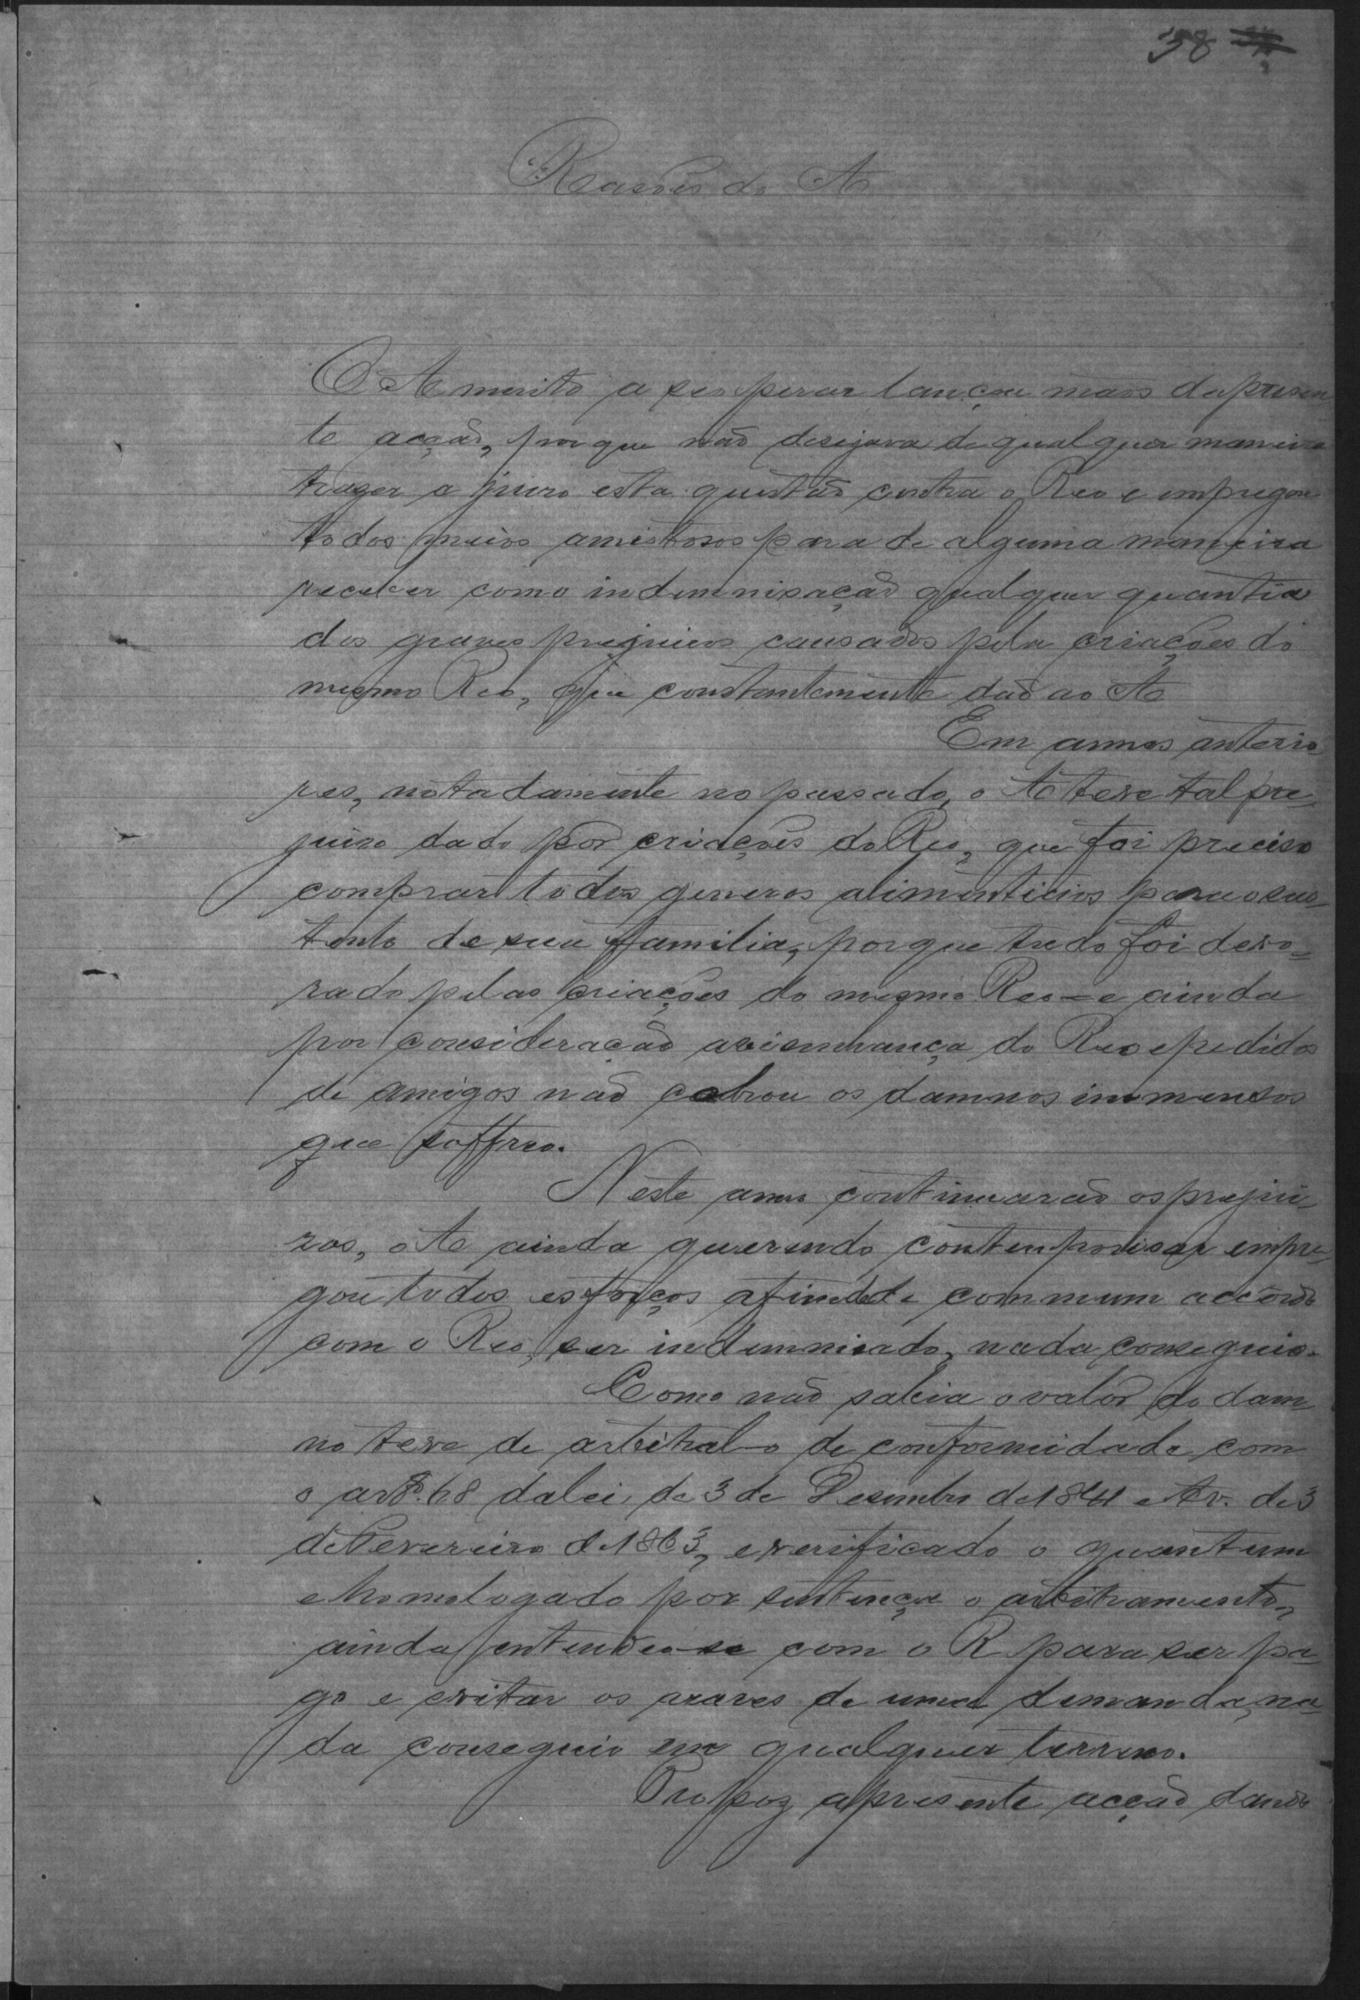 38
Rasoẽs do A
O A muito a seo pezar lançou maos da presen
te acção, porque não desejava de qualquer maneira
trazer a juizo esta questão contra o Reo e empregou
todos meios amistosos para de alguma maneira
receber como indemnisação qualquer quantia
dos graves prejuizos causados pela criações do
mesmo Reo, que constantemente dão ao A
Em annos anterio
res, notadamente no passado, o A teve tal pre
juizo dado por criações do Reo, que foi preciso
comprar todos generos alimenticios para o sus-
tento de sua familia, porque tudo foi devo-
rado pelas criações do mesmo Reo – e ainda
por consideração a visinhança do Reo e pedidos
de amigos não cobrou os damnos immensos
que soffreo.
Neste anno continuarão os prejui-
zos, o A ainda querendo contemporisar empre-
gou todos esforços afim de de commum accordo
com o Reo, ser indemnisado, nada conseguio.
Como não sabia o valor do dam
no teve de arbitral-o de conformidade com
o art. 68 da lei de 3 de Desembro de 1841 e Av. de 3
de Fevereiro de 1863, e verificado o quantum
e homologado por sentença o arbitramento,
ainda entendeo-se com o R para ser pa-
go e evitar os azares de uma demanda, na-
da conseguio em qualquer terreno.
Propoz a presente acção dando